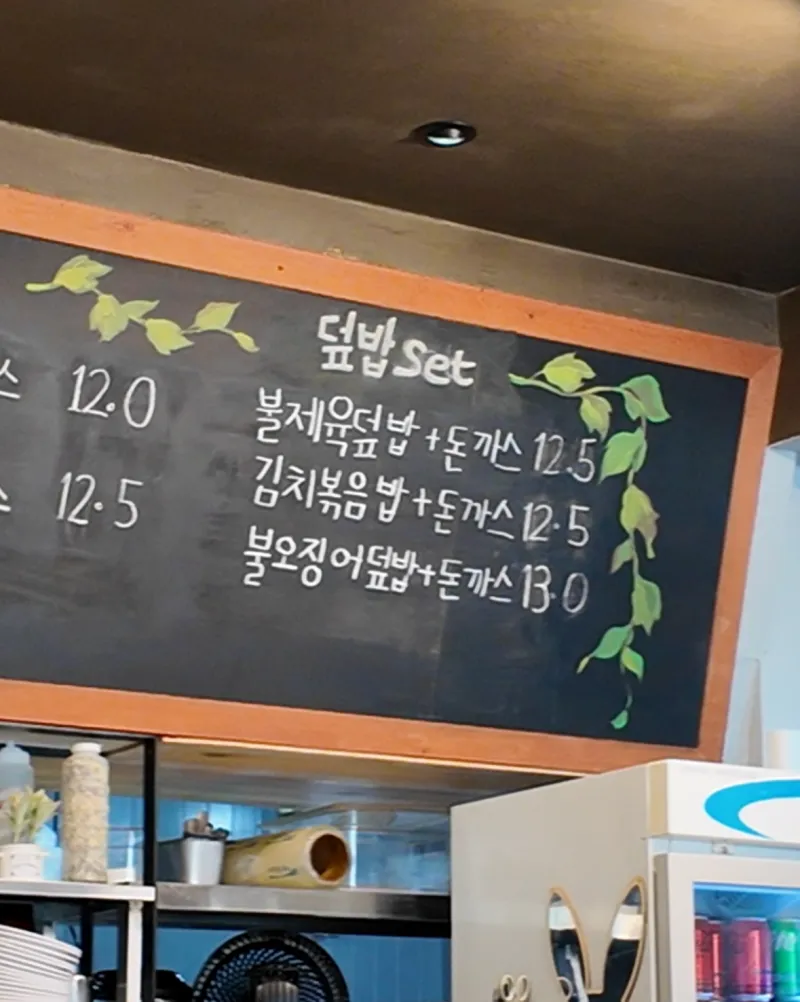 덮밥 set
스 12.0
불제육덮밥+돈까스 12.5
김치볶음밥+돈까스 12.5
스 12.5
불오징어덮밥+돈까스 13.0